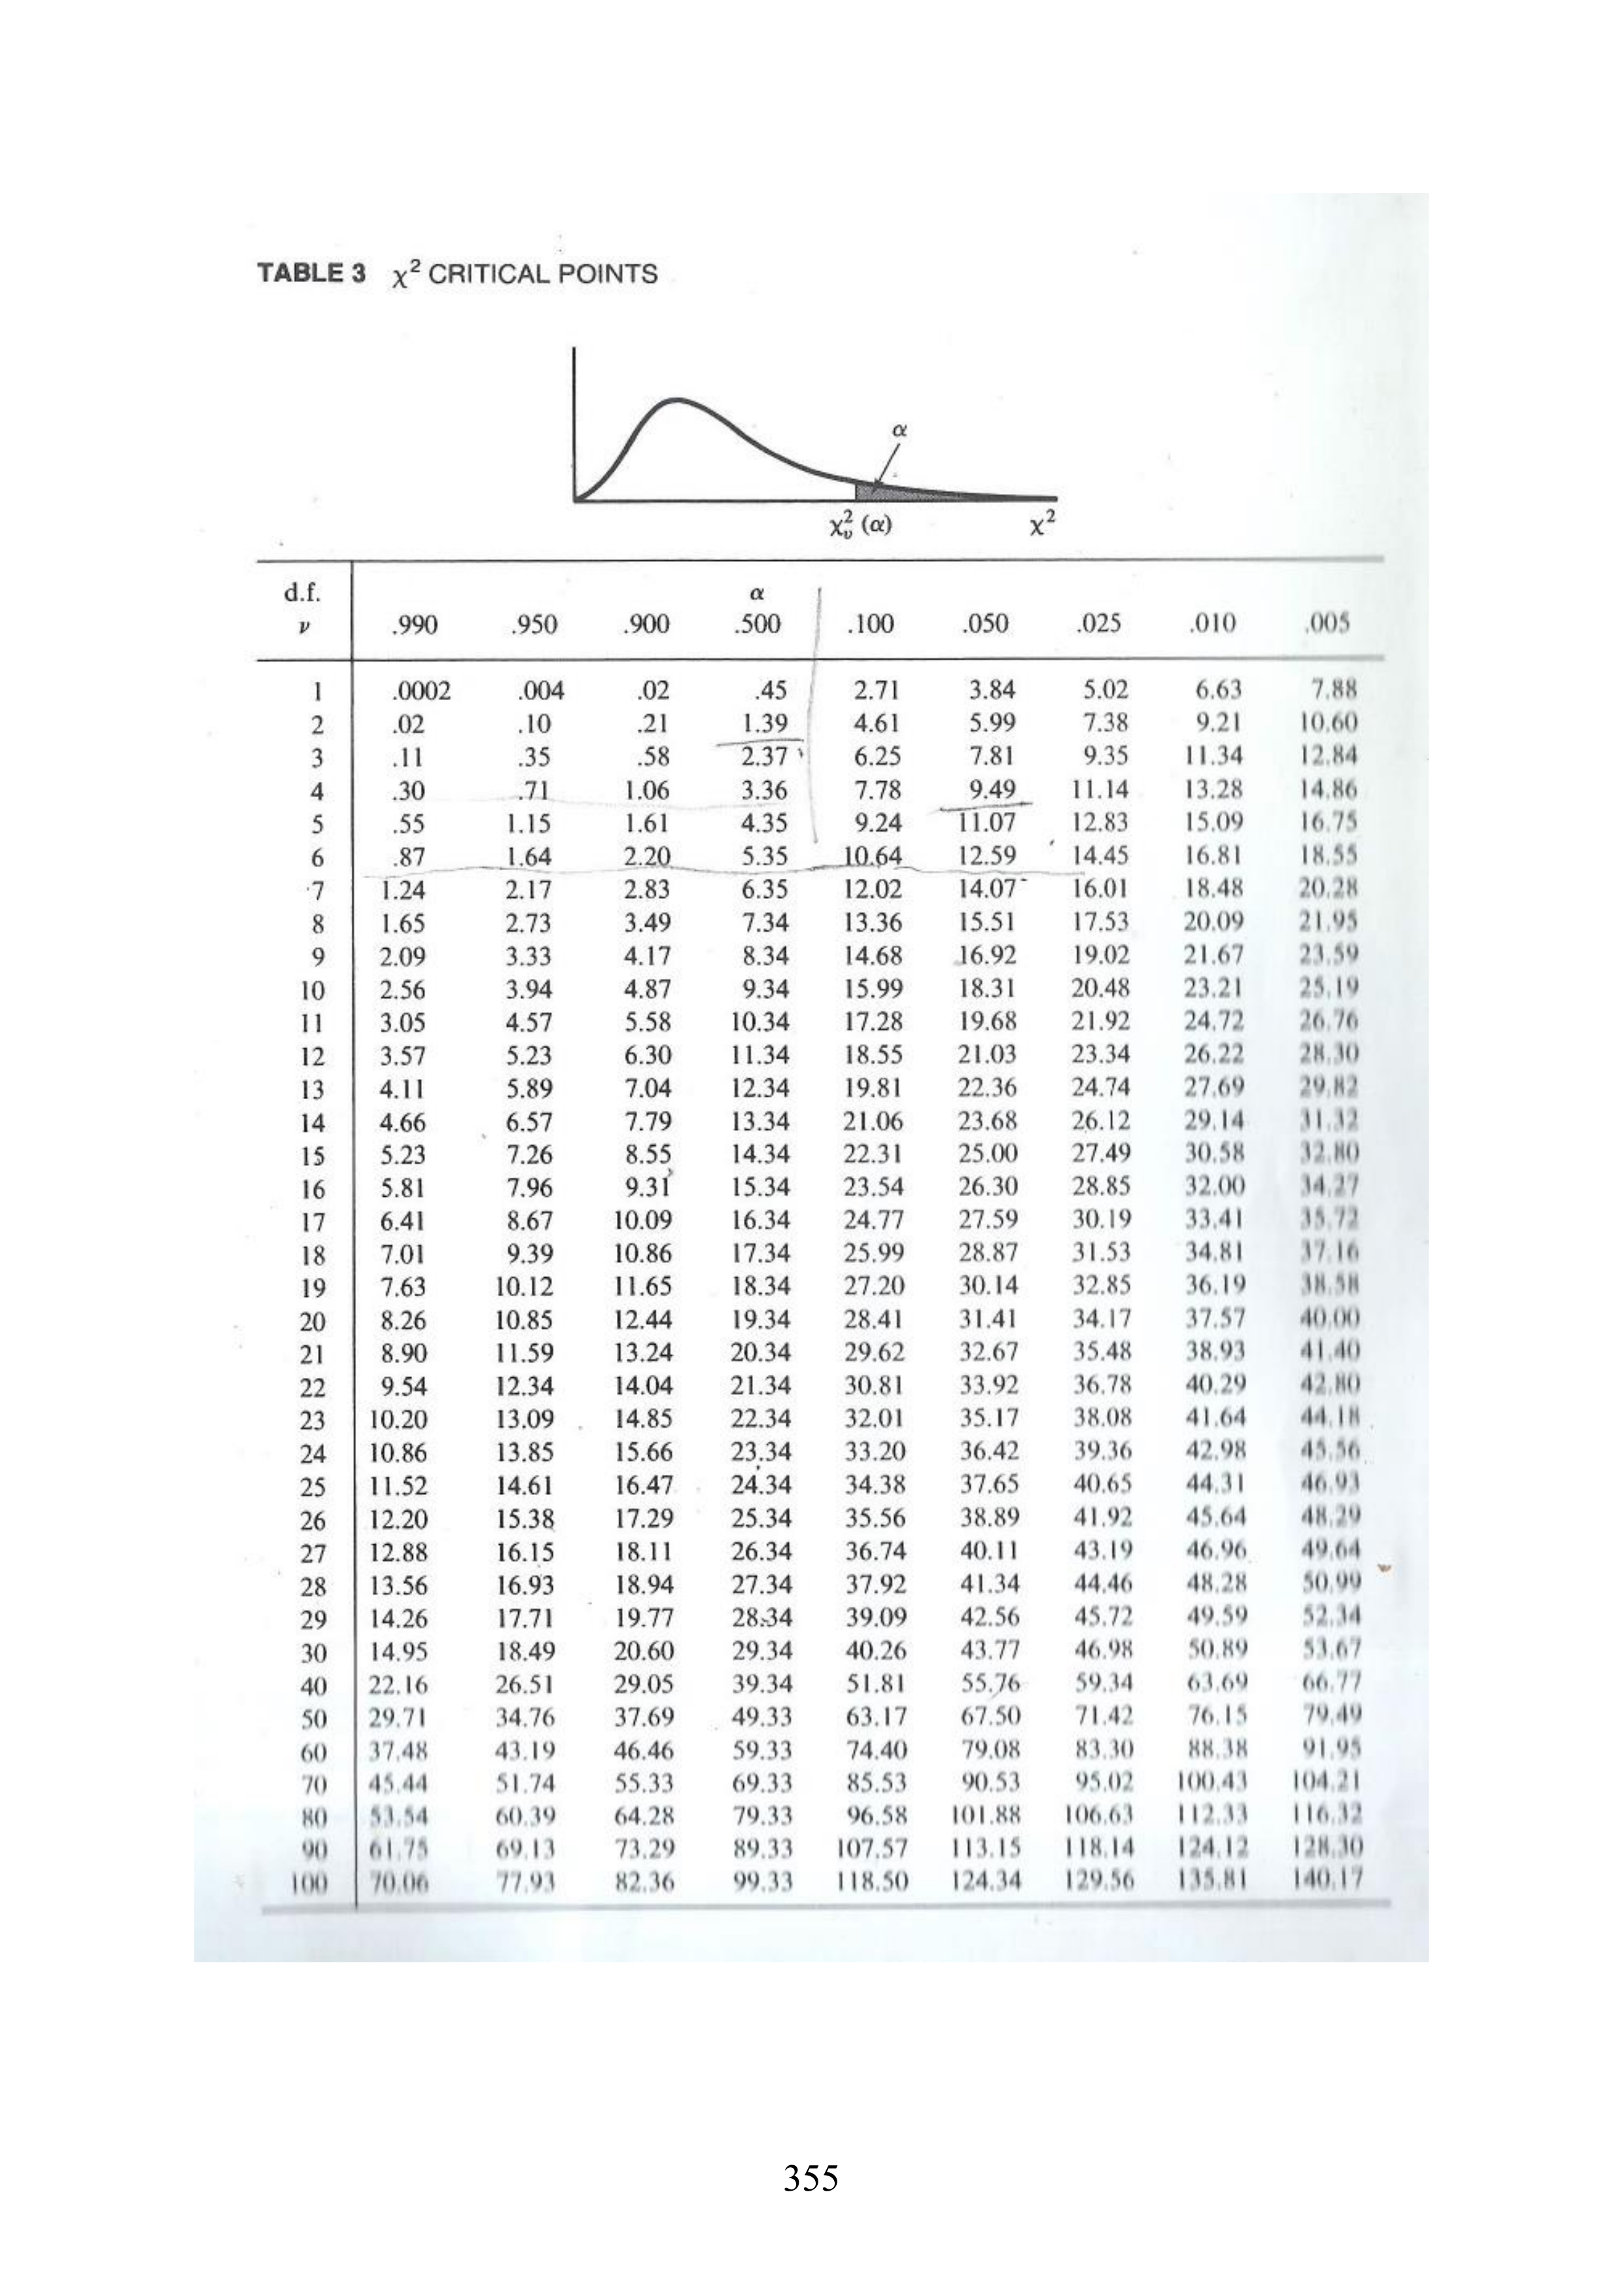 TABLE 3 χ² CRITICAL POINTS
α
χ²ᵥ (α) χ²
d.f. α
ν .990 .950 .900 .500 .100 .050 .025 .010 .005
1 .0002 .004 .02 .45 2.71 3.84 5.02 6.63 7.88
2 .02 .10 .21 1.39 4.61 5.99 7.38 9.21 10.60
3 .11 .35 .58 2.37 6.25 7.81 9.35 11.34 12.84
4 .30 .71 1.06 3.36 7.78 9.49 11.14 13.28 14.86
5 .55 1.15 1.61 4.35 9.24 11.07 12.83 15.09 16.75
6 .87 1.64 2.20 5.35 10.64 12.59 14.45 16.81 18.55
7 1.24 2.17 2.83 6.35 12.02 14.07 16.01 18.48 20.28
8 1.65 2.73 3.49 7.34 13.36 15.51 17.53 20.09 21.95
9 2.09 3.33 4.17 8.34 14.68 16.92 19.02 21.67 23.59
10 2.56 3.94 4.87 9.34 15.99 18.31 20.48 23.21 25.19
11 3.05 4.57 5.58 10.34 17.28 19.68 21.92 24.72 26.76
12 3.57 5.23 6.30 11.34 18.55 21.03 23.34 26.22 28.30
13 4.11 5.89 7.04 12.34 19.81 22.36 24.74 27.69 29.82
14 4.66 6.57 7.79 13.34 21.06 23.68 26.12 29.14 31.32
15 5.23 7.26 8.55 14.34 22.31 25.00 27.49 30.58 32.80
16 5.81 7.96 9.31 15.34 23.54 26.30 28.85 32.00 34.27
17 6.41 8.67 10.09 16.34 24.77 27.59 30.19 33.41 35.72
18 7.01 9.39 10.86 17.34 25.99 28.87 31.53 34.81 37.16
19 7.63 10.12 11.65 18.34 27.20 30.14 32.85 36.19 38.58
20 8.26 10.85 12.44 19.34 28.41 31.41 34.17 37.57 40.00
21 8.90 11.59 13.24 20.34 29.62 32.67 35.48 38.93 41.40
22 9.54 12.34 14.04 21.34 30.81 33.92 36.78 40.29 42.80
23 10.20 13.09 14.85 22.34 32.01 35.17 38.08 41.64 44.18
24 10.86 13.85 15.66 23.34 33.20 36.42 39.36 42.98 45.56
25 11.52 14.61 16.47 24.34 34.38 37.65 40.65 44.31 46.93
26 12.20 15.38 17.29 25.34 35.56 38.89 41.92 45.64 48.29
27 12.88 16.15 18.11 26.34 36.74 40.11 43.19 46.96 49.64
28 13.56 16.93 18.94 27.34 37.92 41.34 44.46 48.28 50.99
29 14.26 17.71 19.77 28.34 39.09 42.56 45.72 49.59 52.34
30 14.95 18.49 20.60 29.34 40.26 43.77 46.98 50.89 53.67
40 22.16 26.51 29.05 39.34 51.81 55.76 59.34 63.69 66.77
50 29.71 34.76 37.69 49.33 63.17 67.50 71.42 76.15 79.49
60 37.48 43.19 46.46 59.33 74.40 79.08 83.30 88.38 91.95
70 45.44 51.74 55.33 69.33 85.53 90.53 95.02 100.43 104.21
80 53.54 60.39 64.28 79.33 96.58 101.88 106.63 112.33 116.32
90 61.75 69.13 73.29 89.33 107.57 113.15 118.14 124.12 128.30
100 70.06 77.93 82.36 99.33 118.50 124.34 129.56 135.81 140.17
355